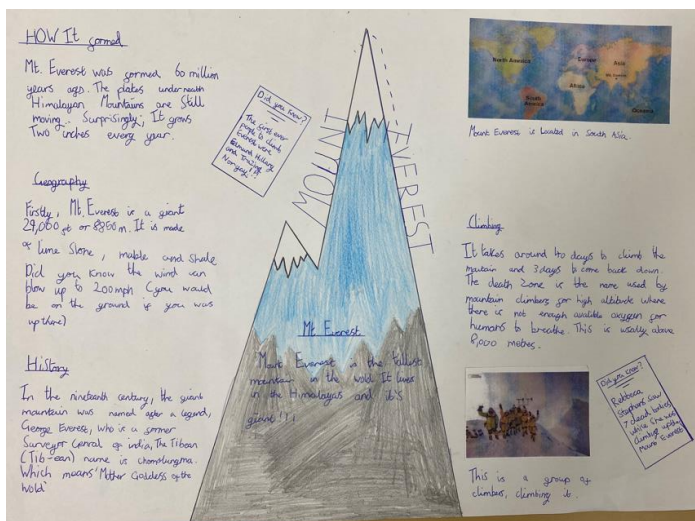 HOW It formed
Mt. Everest was formed 60 million
years ago. The plates underneath
Himalayan Mountains are Still
moving.. Surprisingly, It grows
Two inches every year.
Geography
Firstly, Mt. Everest is a giant
29,000 ft or 8850 m. It is made
of lime Stone, mable and Shale
Did you Know the wind can
blow up to 200mph (you would
be on the ground if you was
up there)
HiStory
In the nineteenth century, the giant
mountain was named after a legend,
George Everest, who is a former
Surveyor Genral of india, The Tibean
(Tib-ean) name is chomolungma.
Which means 'Mother Goddess of the
World'
Did you know?
The first ever
people to climb
Everest were
Edmund Hillary
and
Norgey!!!
MOUNT
EVEREST
Mt. Everest
Mount Everest is the tallest
mountain in the wold. It lives
in the Himalayas and it's
giant!!!
North America
Europe
Asia
Africa
South
America
Oceania
Mount Everest is Located in South Asia.
Climbing
It takes around 40 days to climb the
moutain and 3 days to come back down.
The death Zone is the name used by
mountain climbers for high altitude where
there is not enough avalible oxygen for
humans to breathe. This is usally above
8,000 metres.
Did you know?
Rebbeca
Stephens Saw
7 dead bodies
while She was
climbing up the
Mount Everest
This is a group of
climbers, climbing it.